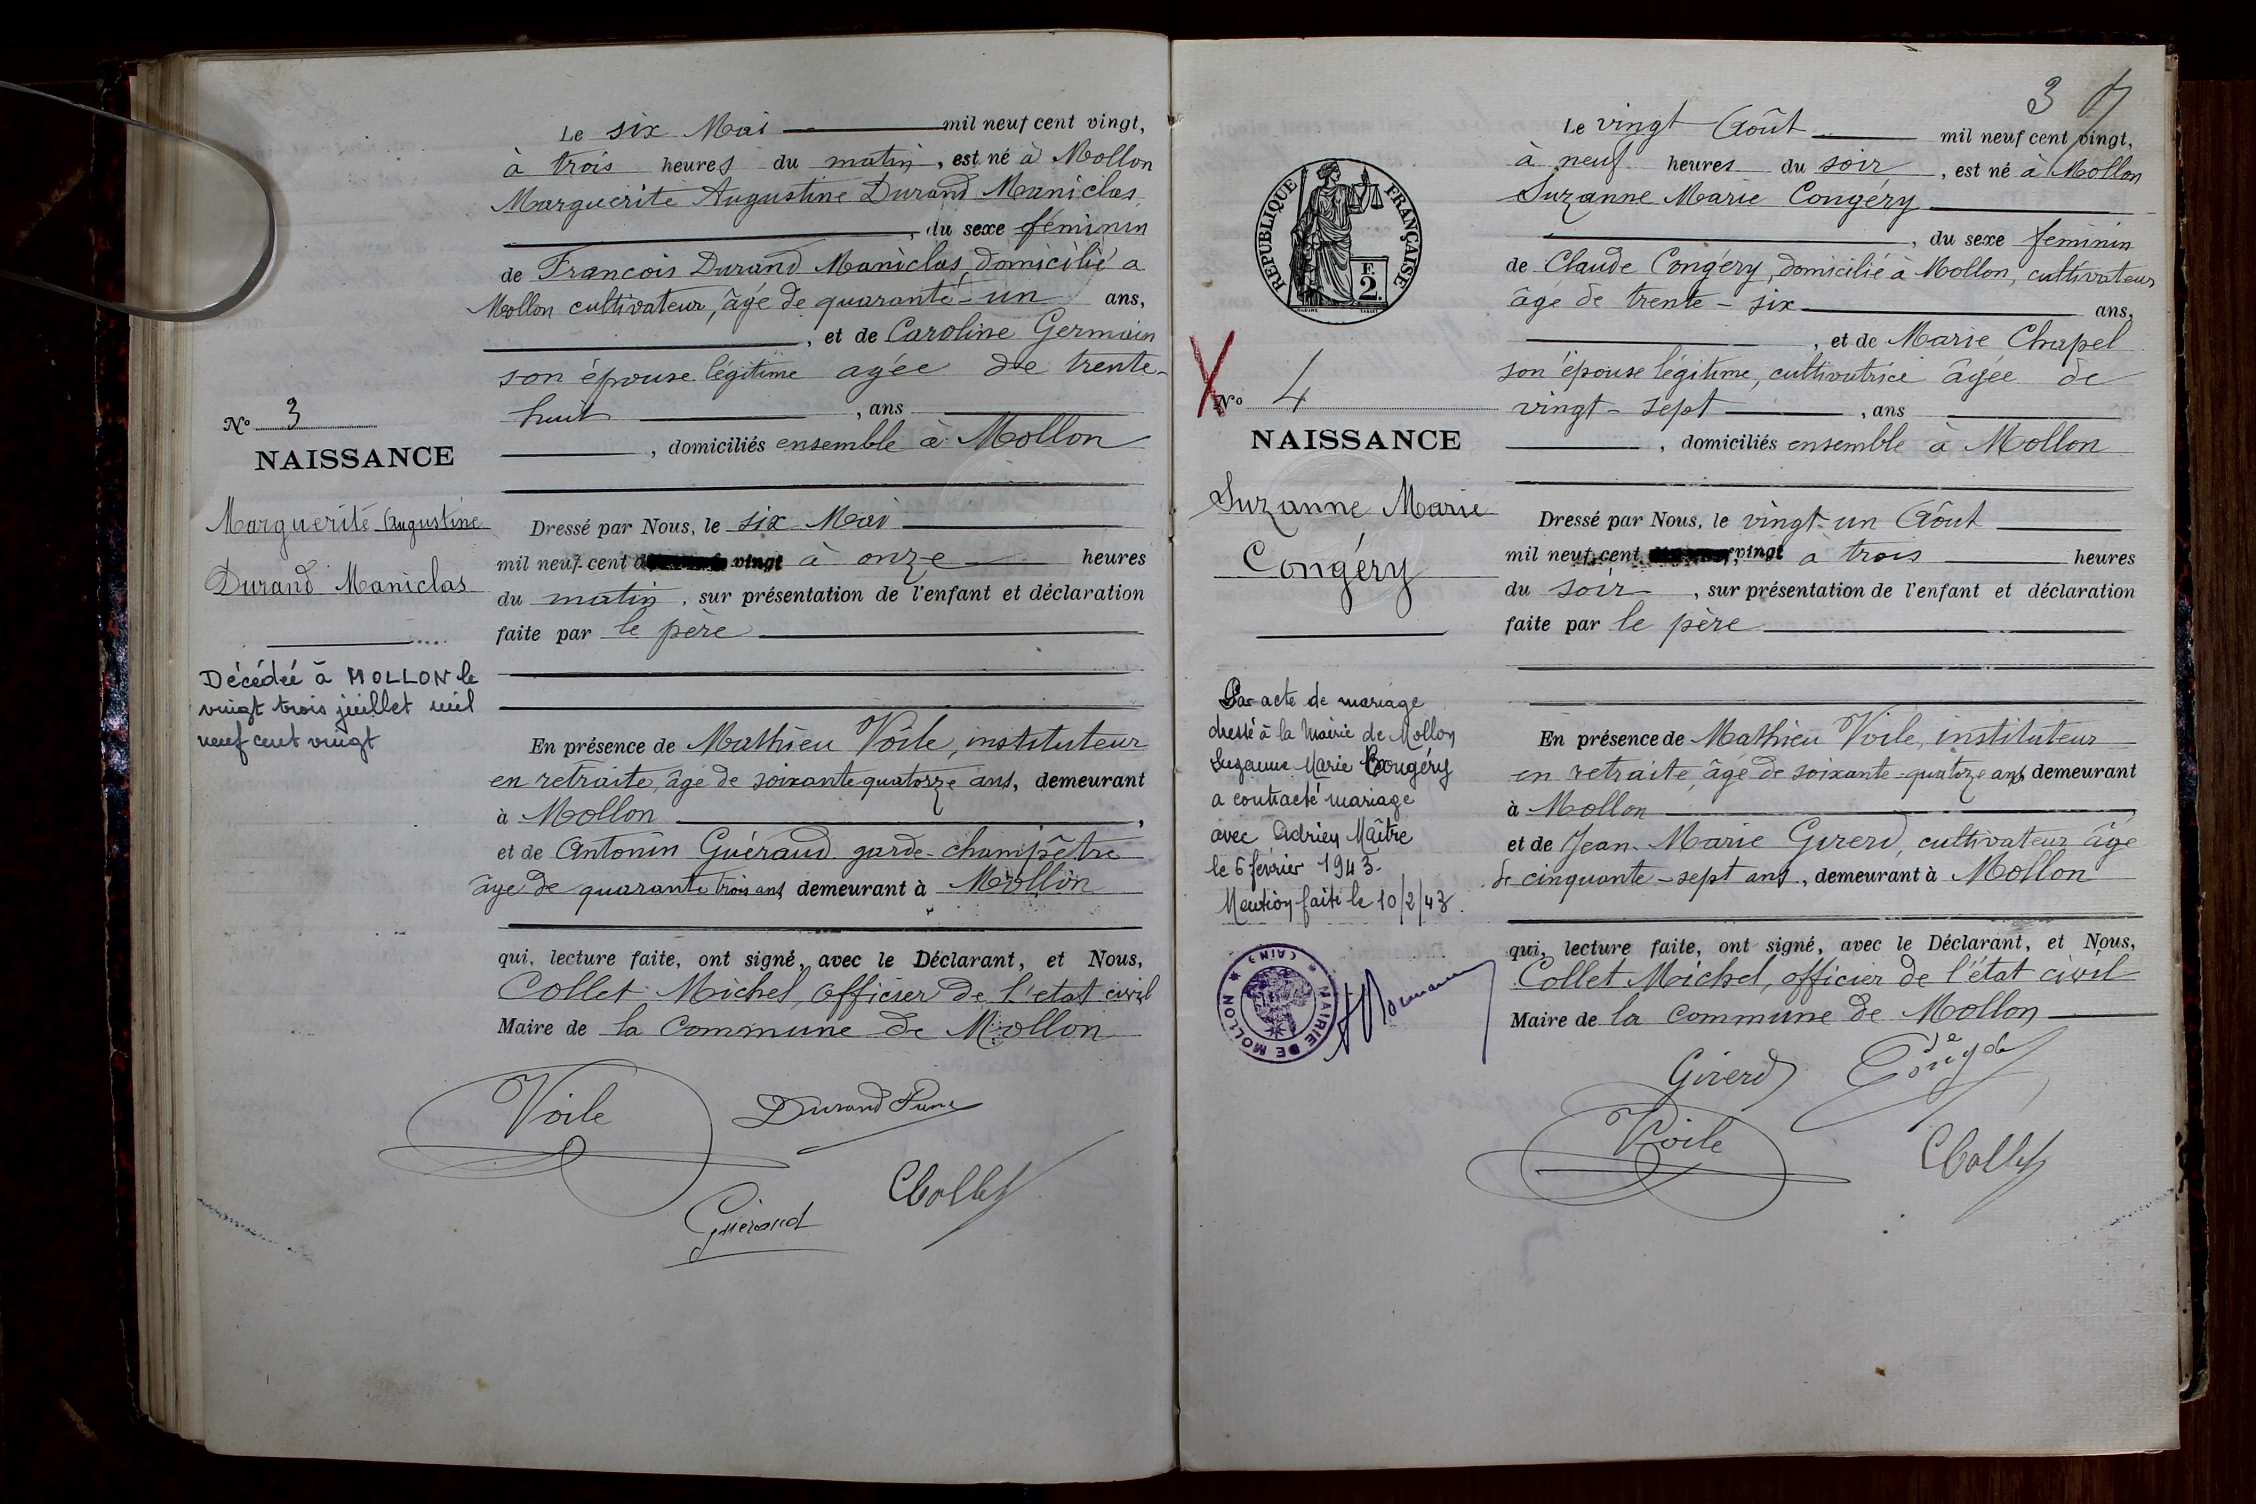 Le six Mai mil neuf cent vingt,
à trois heures du matin, est né à Mollon
Marguerite Augustine Durand Maniclas
, du sexe féminin
de François Durand Maniclas, domicilié a
Mollon cultivateur, âgé de quarante-un ans,
, et de Caroline Germain
son épouse légitime agée de trente-
huit , ans
, domiciliés ensemble à Mollon
N° 3
NAISSANCE
Marguerite Augustine
Durand Maniclas
Décédée à MOLLON le
vingt trois juillet mil
neuf cent vingt
Dressé par Nous, le six Mai
mil neuf cent vingt à onze heures
du matin, sur présentation de l'enfant et déclaration
faite par le père
En présence de Mathieu Voile, instituteur
en retraite, âgé de soixante quatorze ans, demeurant
à Mollon ,
et de Antonin Guéraud garde-champêtre
âge de quarante trois ans demeurant à Mollon
qui, lecture faite, ont signé, avec le Déclarant, et Nous,
Collet Michel, officier de l'etat civil
Maire de la Commune de Mollon
Voile
Durand
Guéraud
Collet
3
Le vingt Août mil neuf cent vingt,
à neuf heures du soir, est né à Mollon
Suzanne Marie Congéry
, du sexe feminin
de Claude Congéry, domicilié à Mollon, cultivateur
âgé de trente-six ans,
, et de Marie Chapel
son épouse légitime, cultivatrice âgée de
vingt-sept , ans
, domiciliés ensemble à Mollon
RÉPUBLIQUE FRANÇAISE
F.
2.
N° 4
NAISSANCE
Suzanne Marie
Congéry
Par acte de mariage
dressé à la Mairie de Mollon
Suzanne Marie Congéry
a contracté mariage
avec Adrien Maître
le 6 février 1943.
Mention faite le 10/2/43.
MAIRIE DE MOLLON * (AIN) *
Dressé par Nous, le vingt-un Août
mil neuf cent vingt à trois heures
du soir , sur présentation de l'enfant et déclaration
faite par le père
En présence de Mathieu Voile, instituteur
en retraite, âgé de soixante-quatorze ans demeurant
à Mollon
et de Jean-Marie Girerd, cultivateur âge
de cinquante-sept ans, demeurant à Mollon
qui, lecture faite, ont signé, avec le Déclarant, et Nous,
Collet Michel, officier de l'état civil
Maire de la Commune de Mollon
Girerd
Voile
Collet